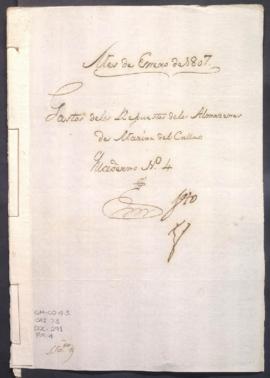 Mes de Enero de 1807
Gastos de los Repuestos de los Almazenes
de Marina del Callao
Quaderno N.º 4
GM-CO 43
CAJ. 73
DOC. 291